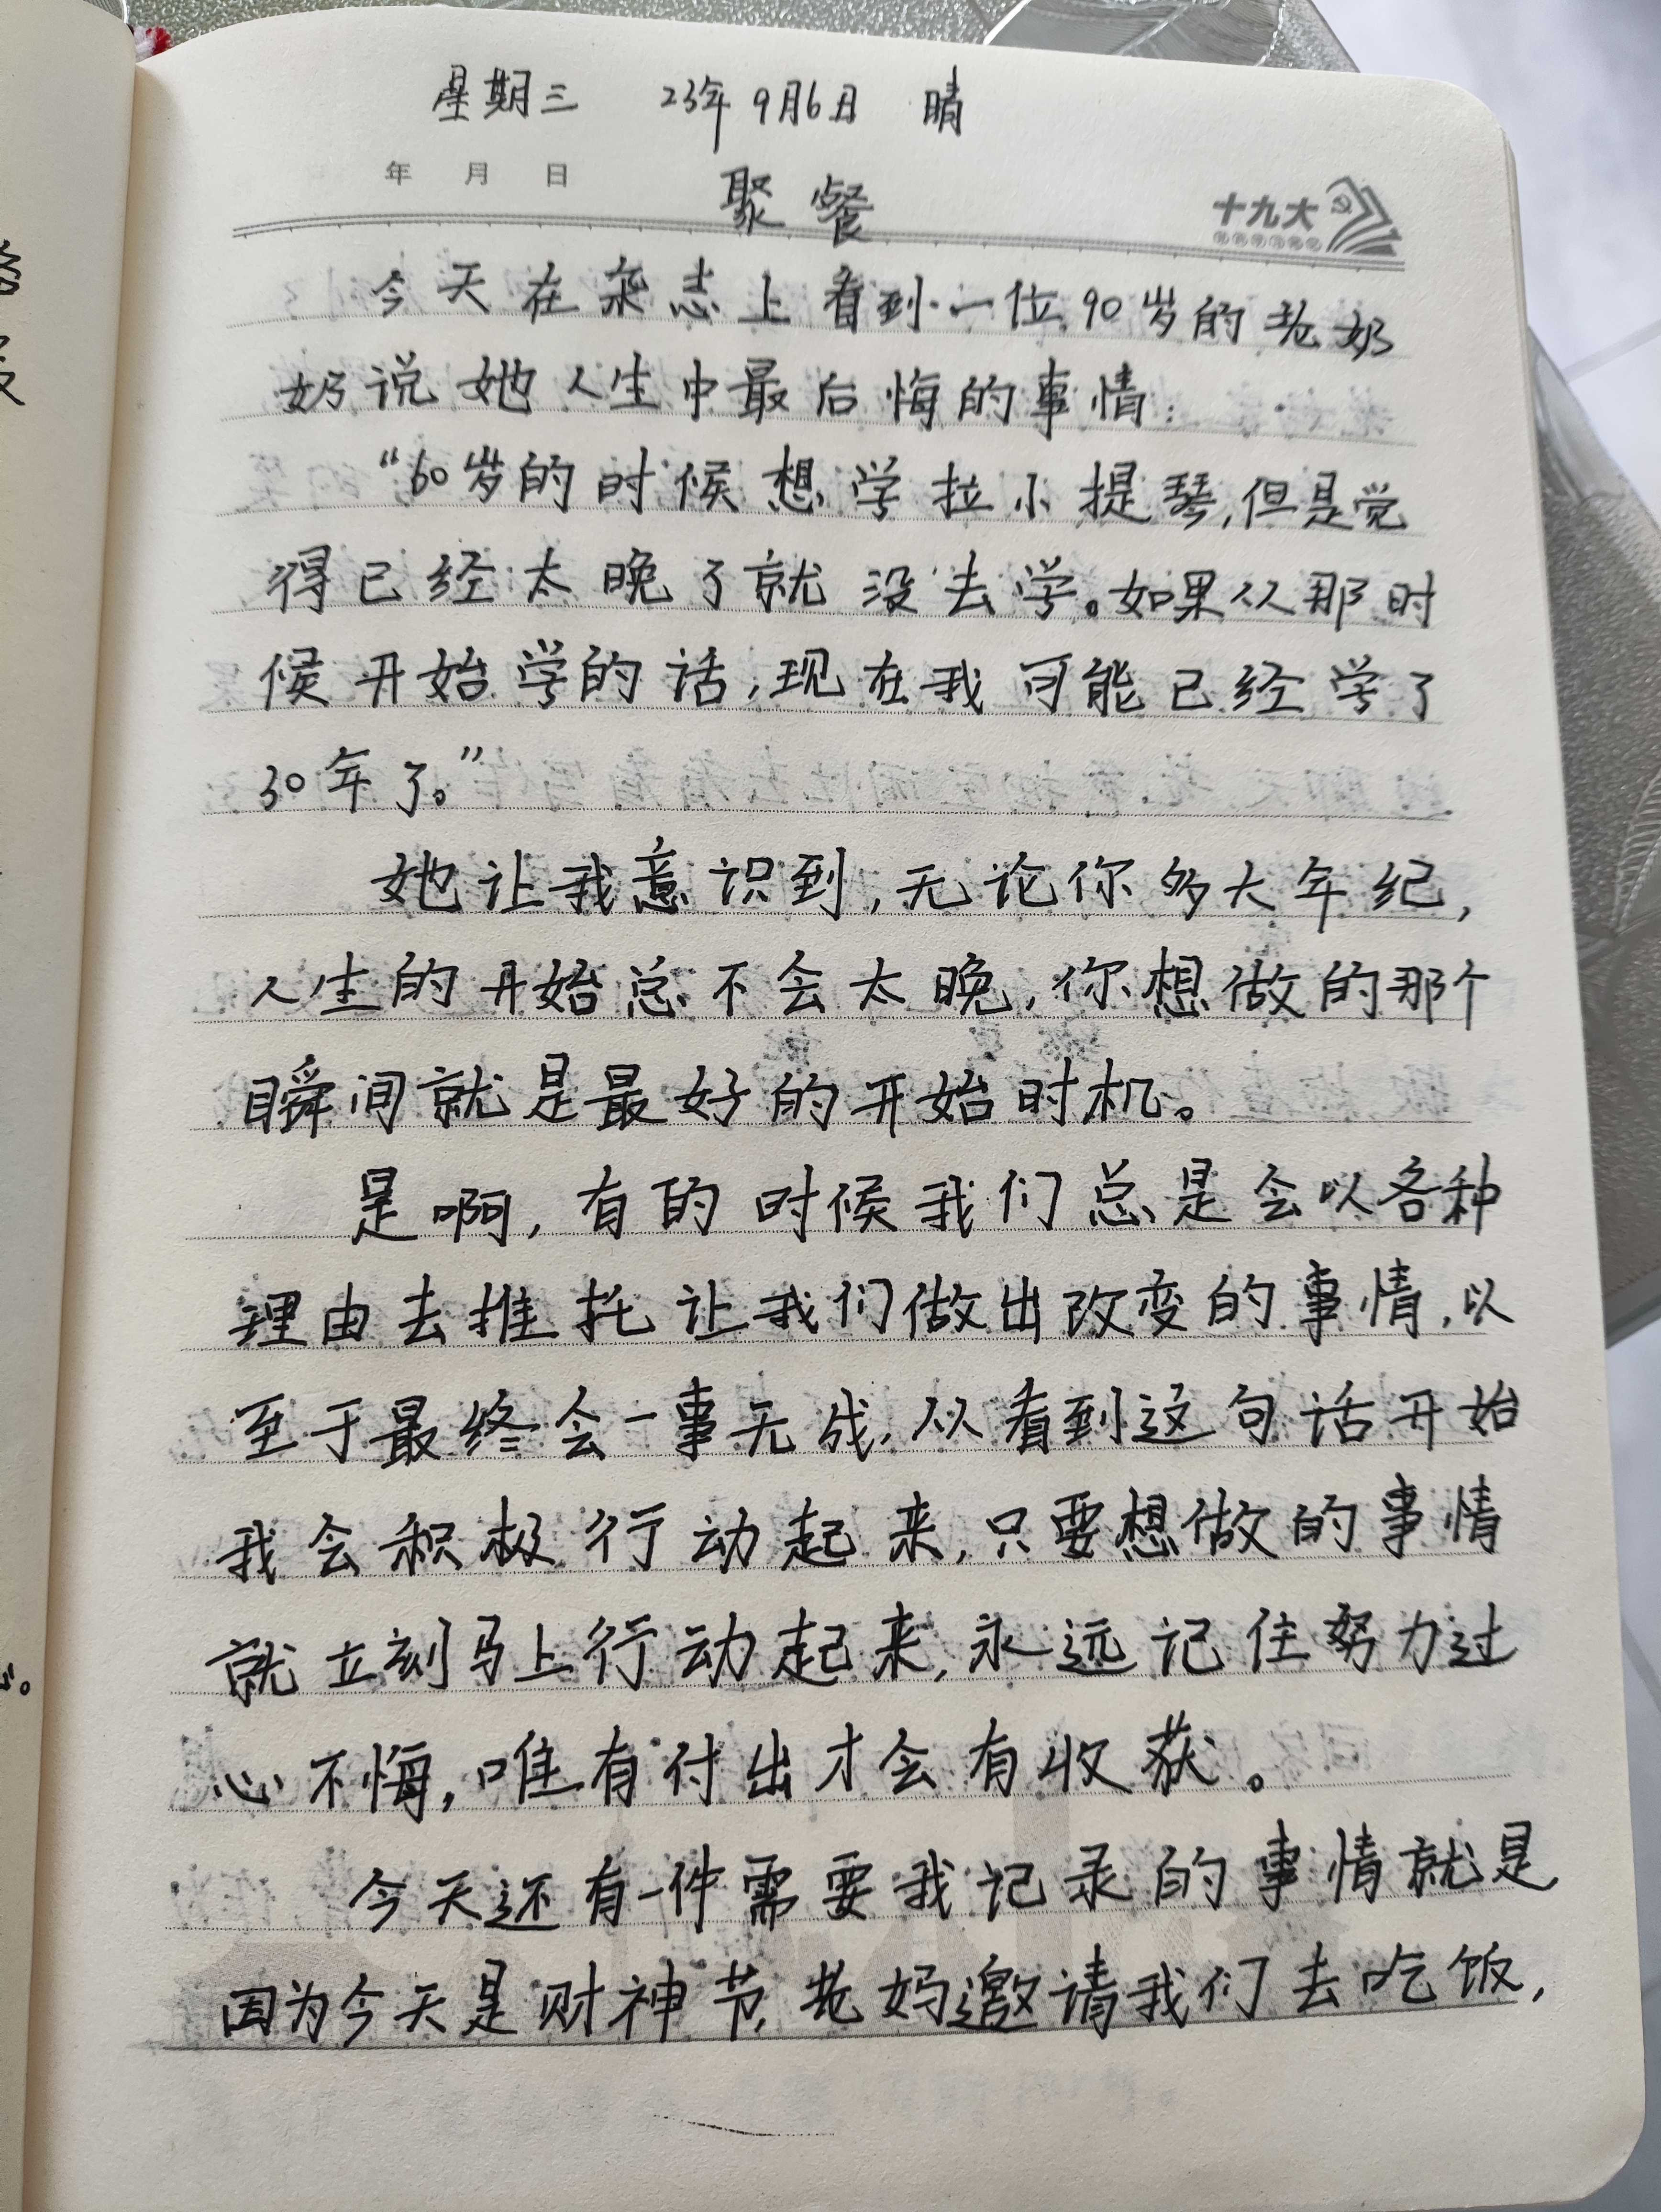 星期三 23年9月6日 晴
年 月 日
聚餐
十九大
今天在杂志上看到一位90岁的老奶
奶说她人生中最后悔的事情:
“60岁的时候想学拉小提琴,但是觉
得已经太晚了就没去学。如果从那时
候开始学的话,现在我可能已经学了
30年了。”
她让我意识到,无论你多大年纪,
人生的开始总不会太晚,你想做的那个
瞬间就是最好的开始时机。
是啊,有的时候我们总是会以各种
理由去推托让我们做出改变的事情,以
至于最终会一事无成,从看到这句话开始
我会积极行动起来,只要想做的事情
就立刻马上行动起来,永远记住努力过
心不悔,唯有付出才会有收获。
今天还有一件需要我记录的事情就是
因为今天是财神节,老妈邀请我们去吃饭,